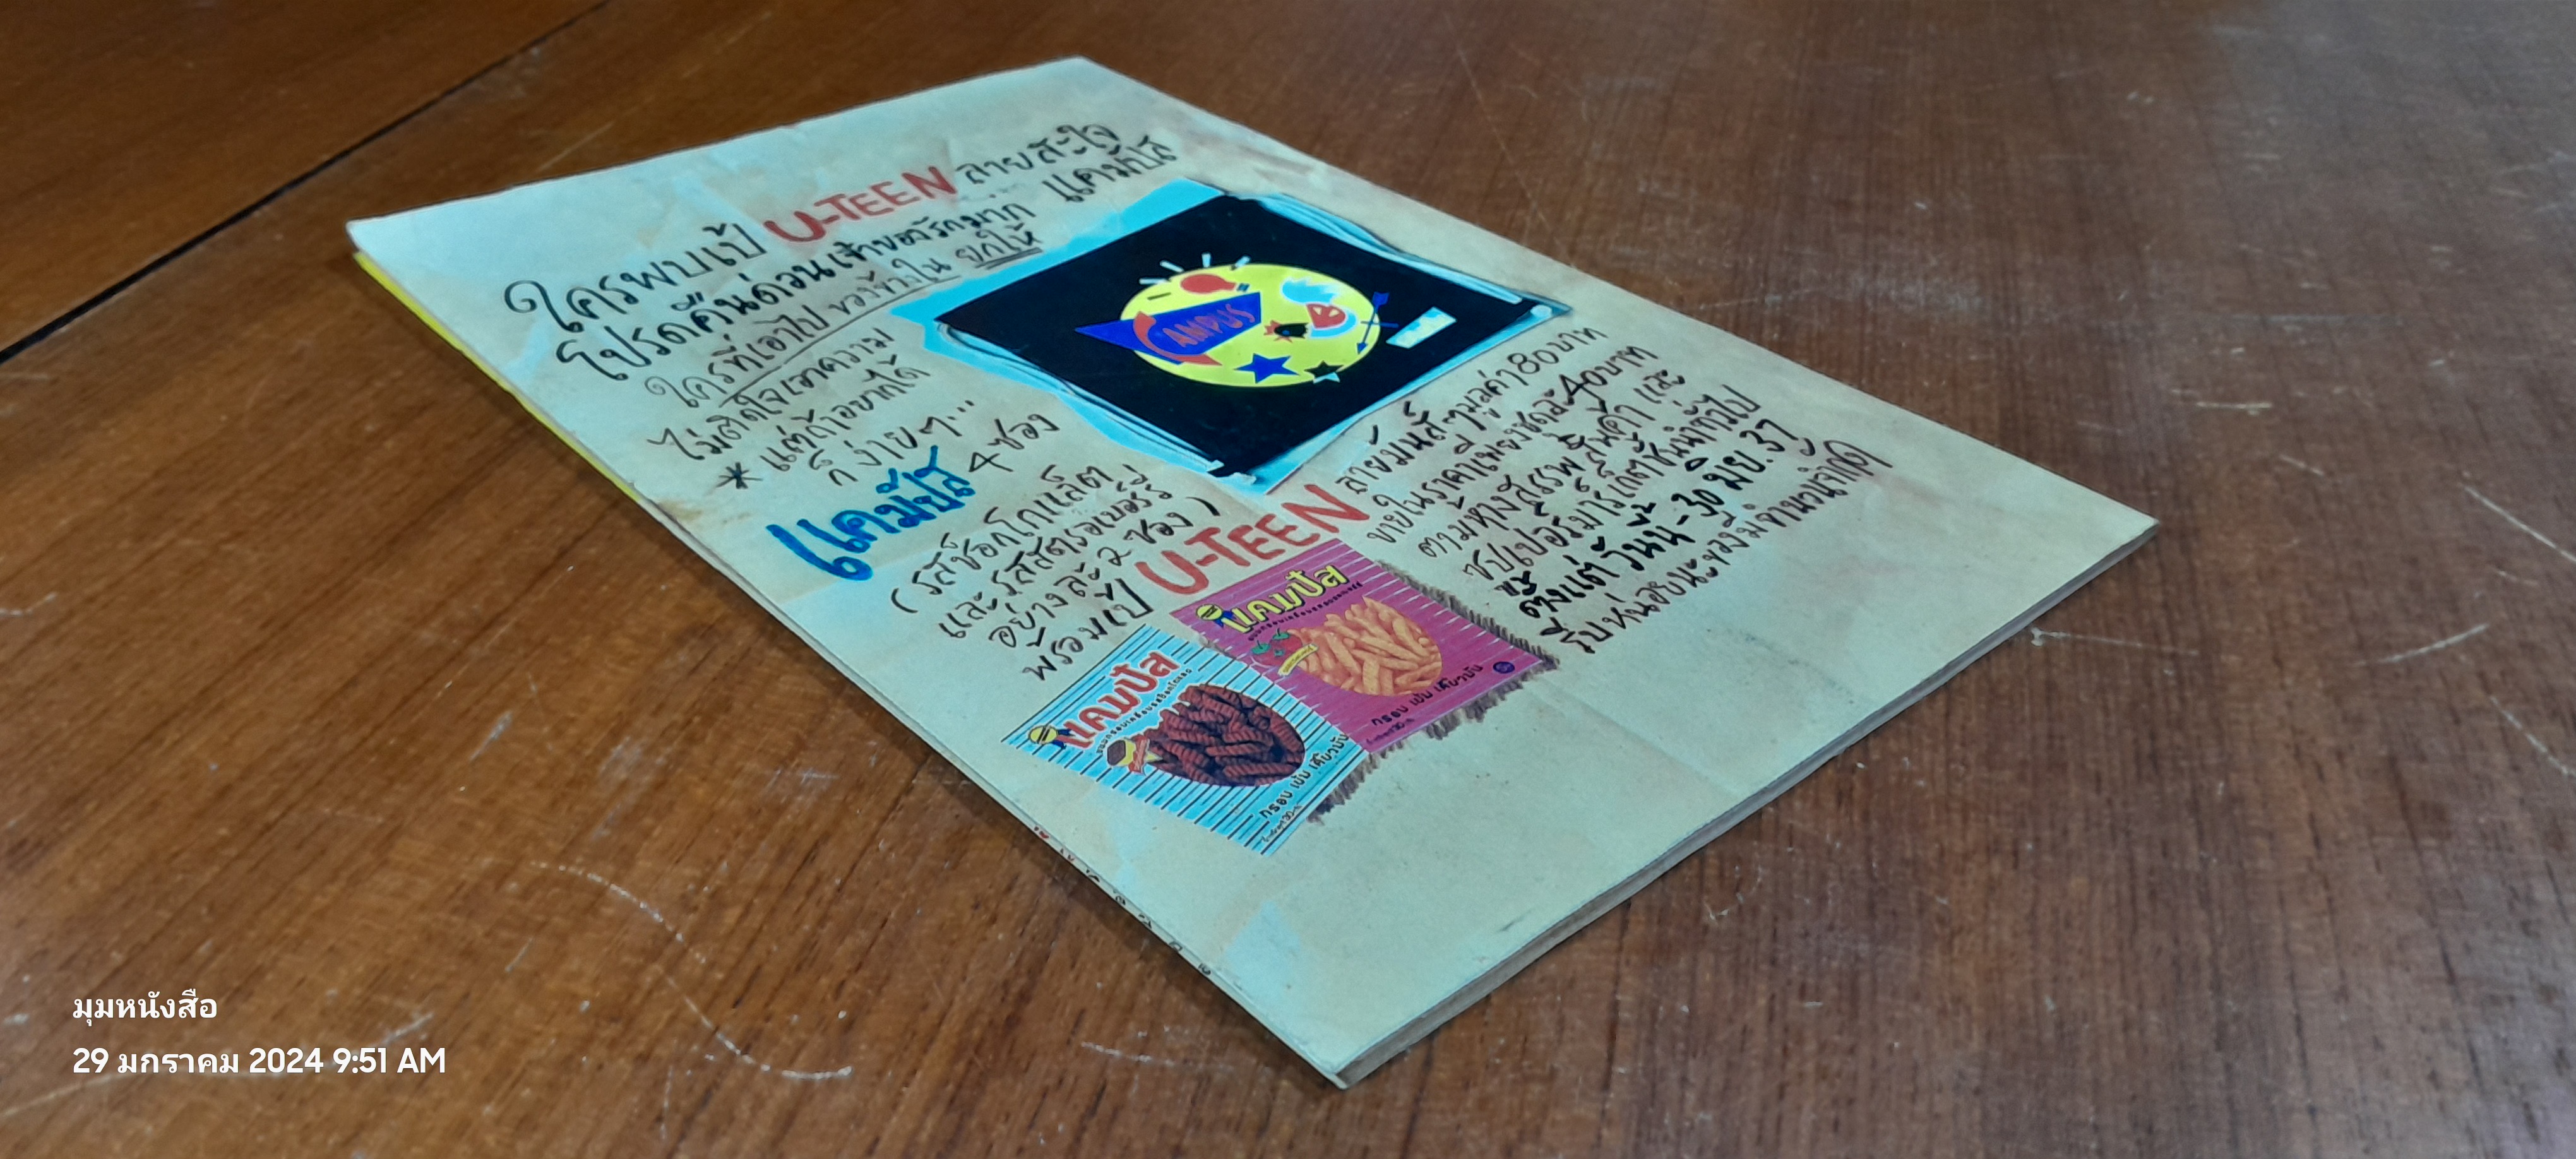 ใครพบเป้ U-TEEN ลายสะใจ
โปรดคืนด่วนเจ้าของรักมาก แคมปัส
ใครที่เอาไป ของข้างใน ยกให้
ไม่ติดใจเอาความ
* แต่ถ้าอยากได้
ก็ ง่ายๆ...
แคมปัส 4 ซอง
(รสช็อกโกแล็ต
และรสสตรอเบอร์รี่
อย่างละ 2 ซอง)
พร้อมเป้ U-TEEN ลายมันส์ๆ มูลค่า 80 บาท
ขายในราคาเพียงชุดละ 40 บาท
ตามห้างสรรพสินค้า และ
ซุปเปอร์มาร์เก็ตชั้นนำทั่วไป
ตั้งแต่ วันนี้ - 30 มิย. 37
รีบหน่อยนะของมีจำนวนจำกัด
CAMPUS
แคมปัส
กรอบ เข้ม เคี้ยวมัน
แคมปัส
กรอบ เข้ม เคี้ยวมัน
มุมหนังสือ
29 มกราคม 2024 9:51 AM